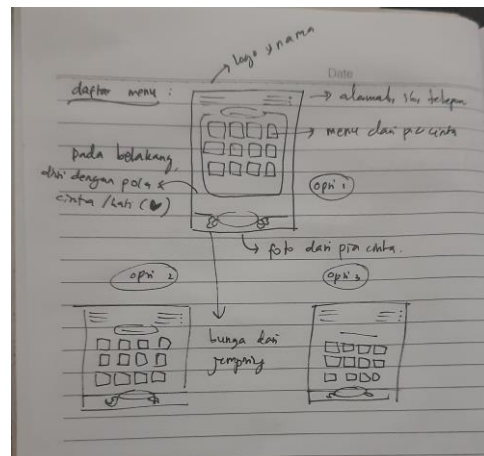 logo & nama
Date
daftar menu :
→ alamat, ig, telepon
→ menu dari pia cinta
pada belakang
diisi dengan pola
cinta / hati (♥)
opsi 1
→ foto dari pia cinta.
opsi 2
opsi 3
bunga dari